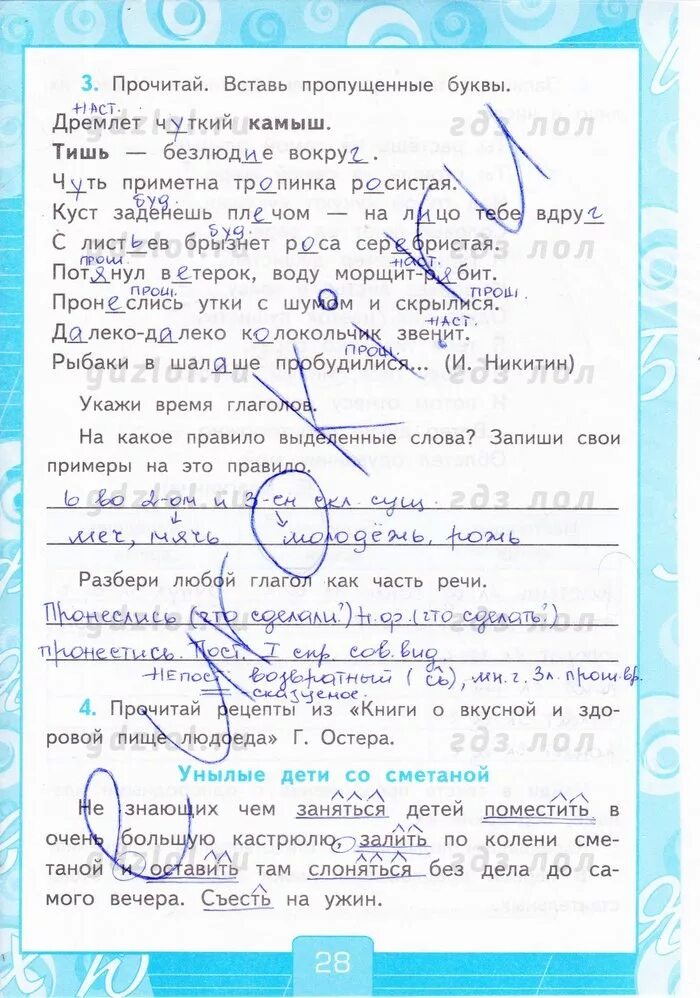 3. Прочитай. Вставь пропущенные буквы.
наст.
Дремлет чуткий камыш.
Тишь — безлюдие вокруг.
Чуть приметна тропинка росистая.
буд.
Куст заденешь плечом — на лицо тебе вдруг
буд.
С листьев брызнет роса серебристая.
прош. наст.
Потянул ветерок, воду морщит-рябит.
прош. прош.
Пронеслись утки с шумом и скрылися.
наст.
Далеко-далеко колокольчик звенит.
прош.
Рыбаки в шалаше пробудилися... (И. Никитин)
Укажи время глаголов.
На какое правило выделенные слова? Запиши свои
примеры на это правило.
ь во 2-ом и 3-ем скл. сущ.
меч, мячь молодёжь, рожь
Разбери любой глагол как часть речи.
Пронеслись (что сделали?) н.ф. (что сделать?)
пронестись. Пост. I спр. сов. вид.
Непост. возвратный (сь), мн. ч. 3 л. прош. вр.
сказуемое.
4. Прочитай рецепты из «Книги о вкусной и здо-
ровой пище людоеда» Г. Остера.
Унылые дети со сметаной
Не знающих чем заняться детей поместить в
очень большую кастрюлю, залить по колени сме-
таной и оставить там слоняться без дела до са-
мого вечера. Съесть на ужин.
28
gdzlol.ru гдз лол